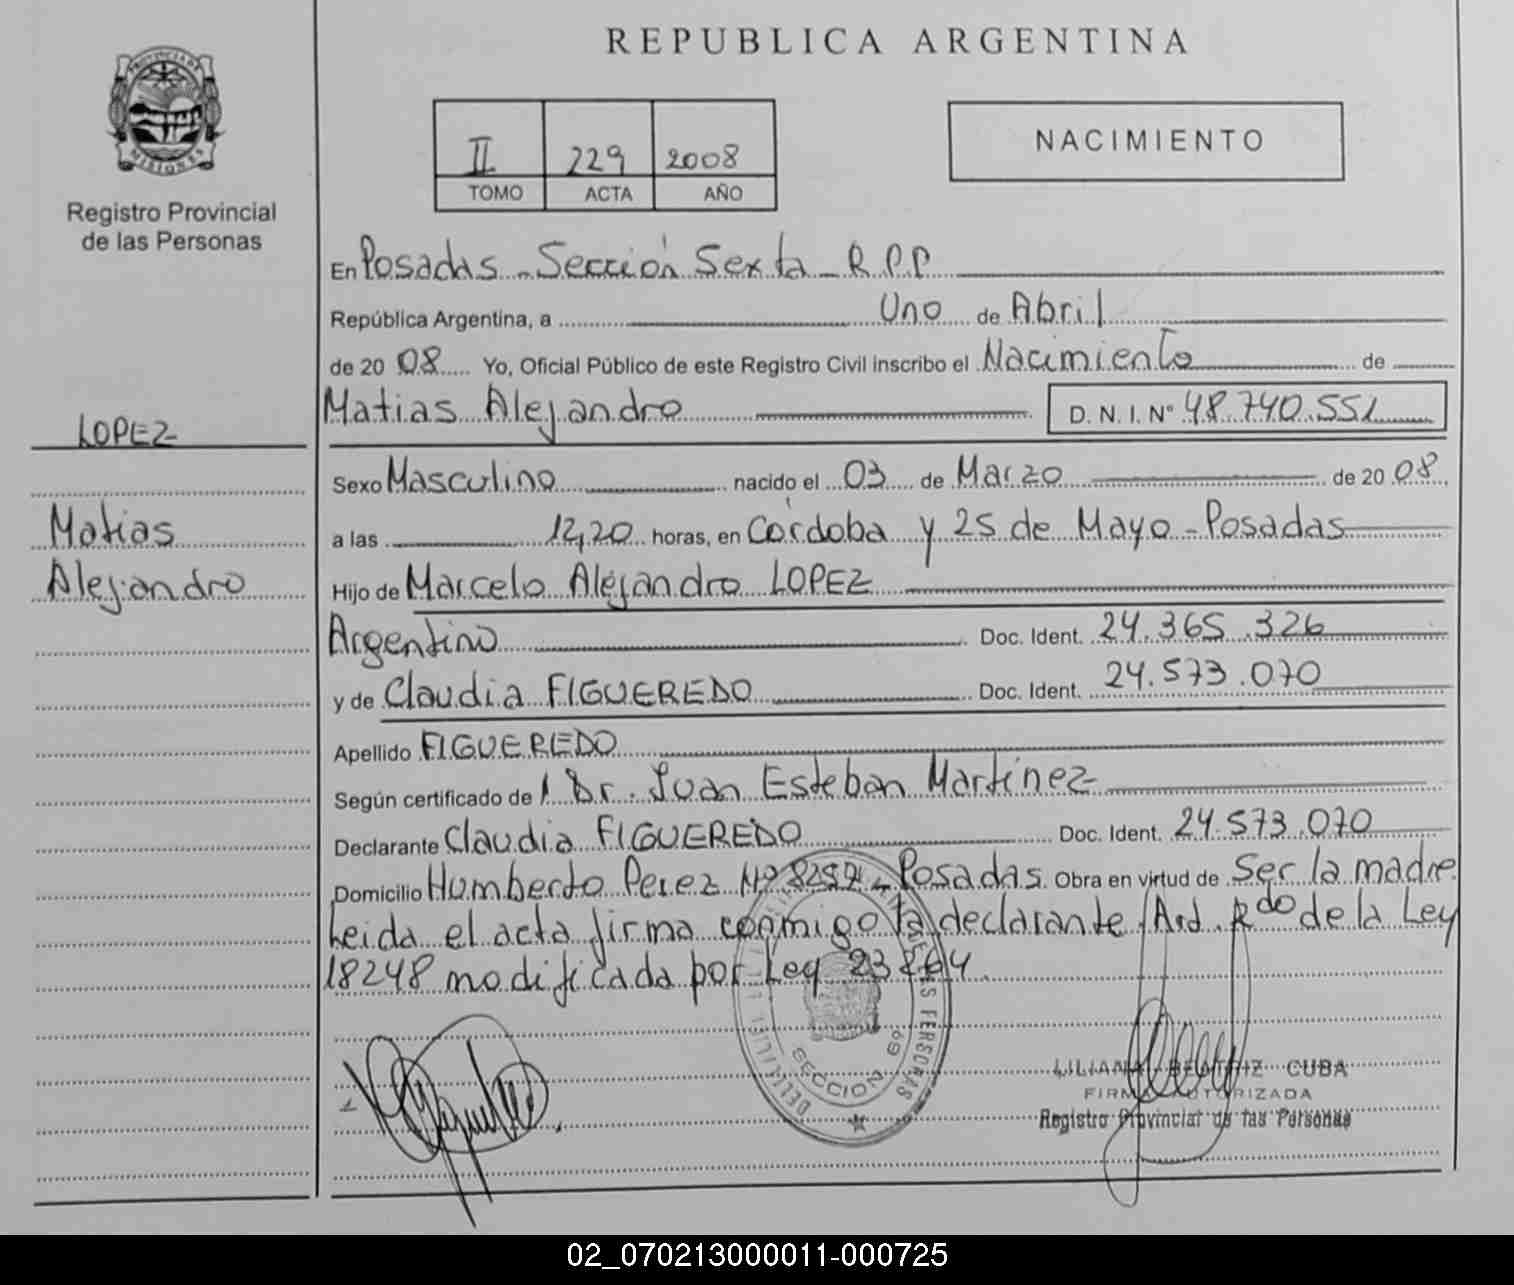 REPUBLICA ARGENTINA
PROVINCIA DE
MISIONES
Registro Provincial
de las Personas
II 229 2008
TOMO ACTA AÑO
NACIMIENTO
En Posadas - Sección Sexta - R.P.P
República Argentina, a Uno de Abril
de 20 08 Yo, Oficial Público de este Registro Civil inscribo el Nacimiento de
Matias Alejandro D. N. I. N° 48.740.551
LOPEZ
Matias
Alejandro
Sexo Masculino nacido el 03 de Marzo de 20 08
a las 12,20 horas, en Córdoba y 25 de Mayo - Posadas
Hijo de Marcelo Alejandro LOPEZ
Argentino Doc. Ident. 24.365.326
y de Claudia FIGUEREDO Doc. Ident. 24.573.070
Apellido FIGUEREDO
Según certificado de Dr. Juan Esteban Martinez
Declarante Claudia FIGUEREDO Doc. Ident. 24.573.070
Domicilio Humberto Perez Nº - Posadas. Obra en virtud de Ser la madre
Leida el acta firma conmigo la declarante de la Ley
18248 modificada por Ley
SECCION 6º
PERSONAS
LILIANA BEATRIZ CUBA
FIRMA AUTORIZADA
Registro Provincial de las Personas
02_070213000011-000725